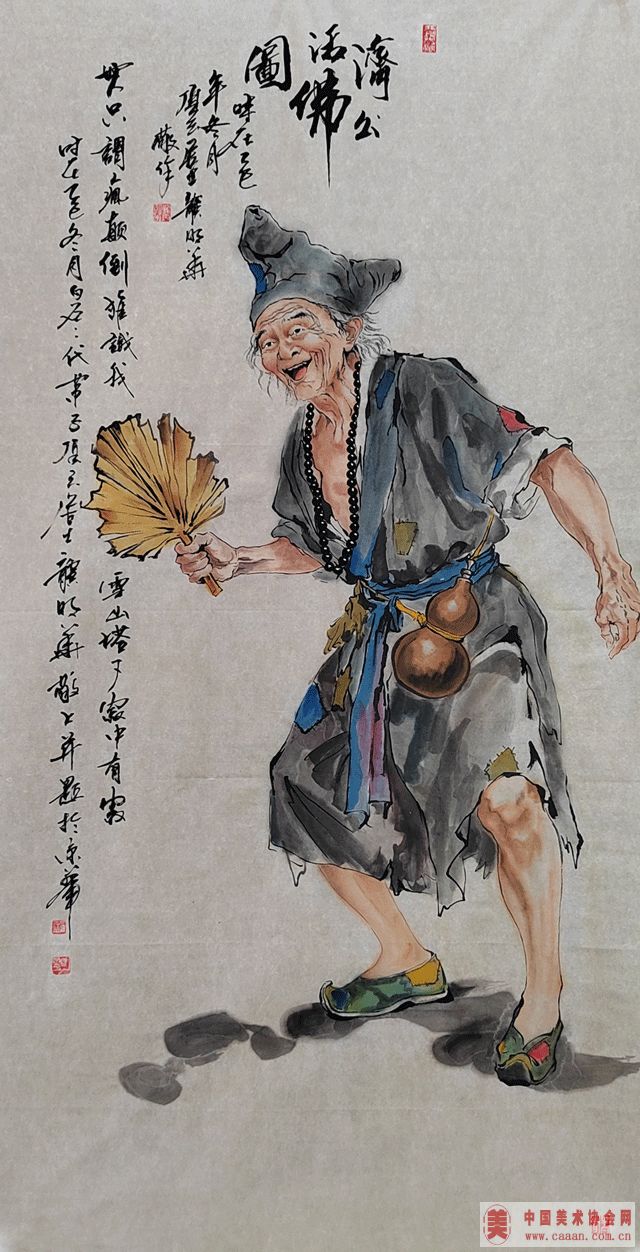 濟公
活佛
圖
時在乙巳
年冬月
居士龔明華
敬作
謂瘋顛倒誰識我
雪山塔下寂中有寂
時在乙巳冬月白石三代弟子居士龔明華敬並題於京華
美
中国美术协会网
www.caaan.com.cn